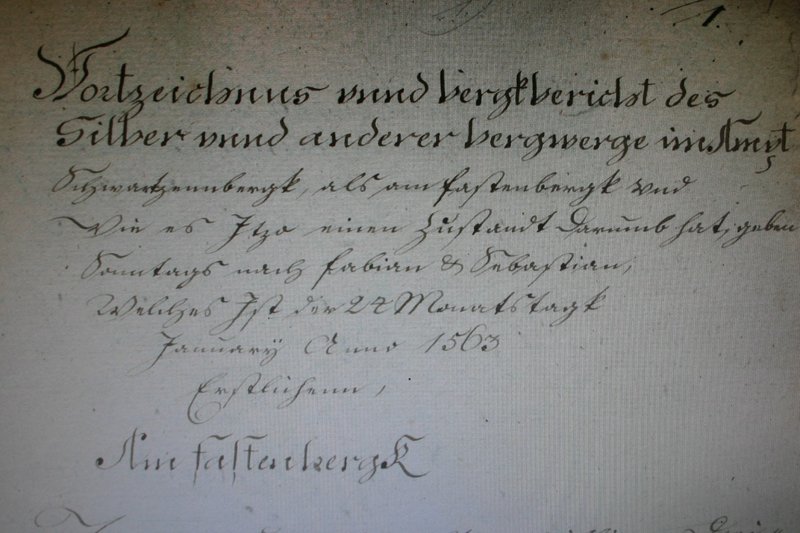 1.
Vortzeichnus vnnd bergkbericht des
Silber vnnd anderer bergwerge im Ampt
Schwartzennbergk, als am fastenbergk vnd
Wie es Itzo einen Zustandt darumb hat, geben
Sonntags nach fabian & Sebastian,
Welches Ist der 24 Monatstagk
January Anno 1563
Erstlichenn,
Am fastenbergk